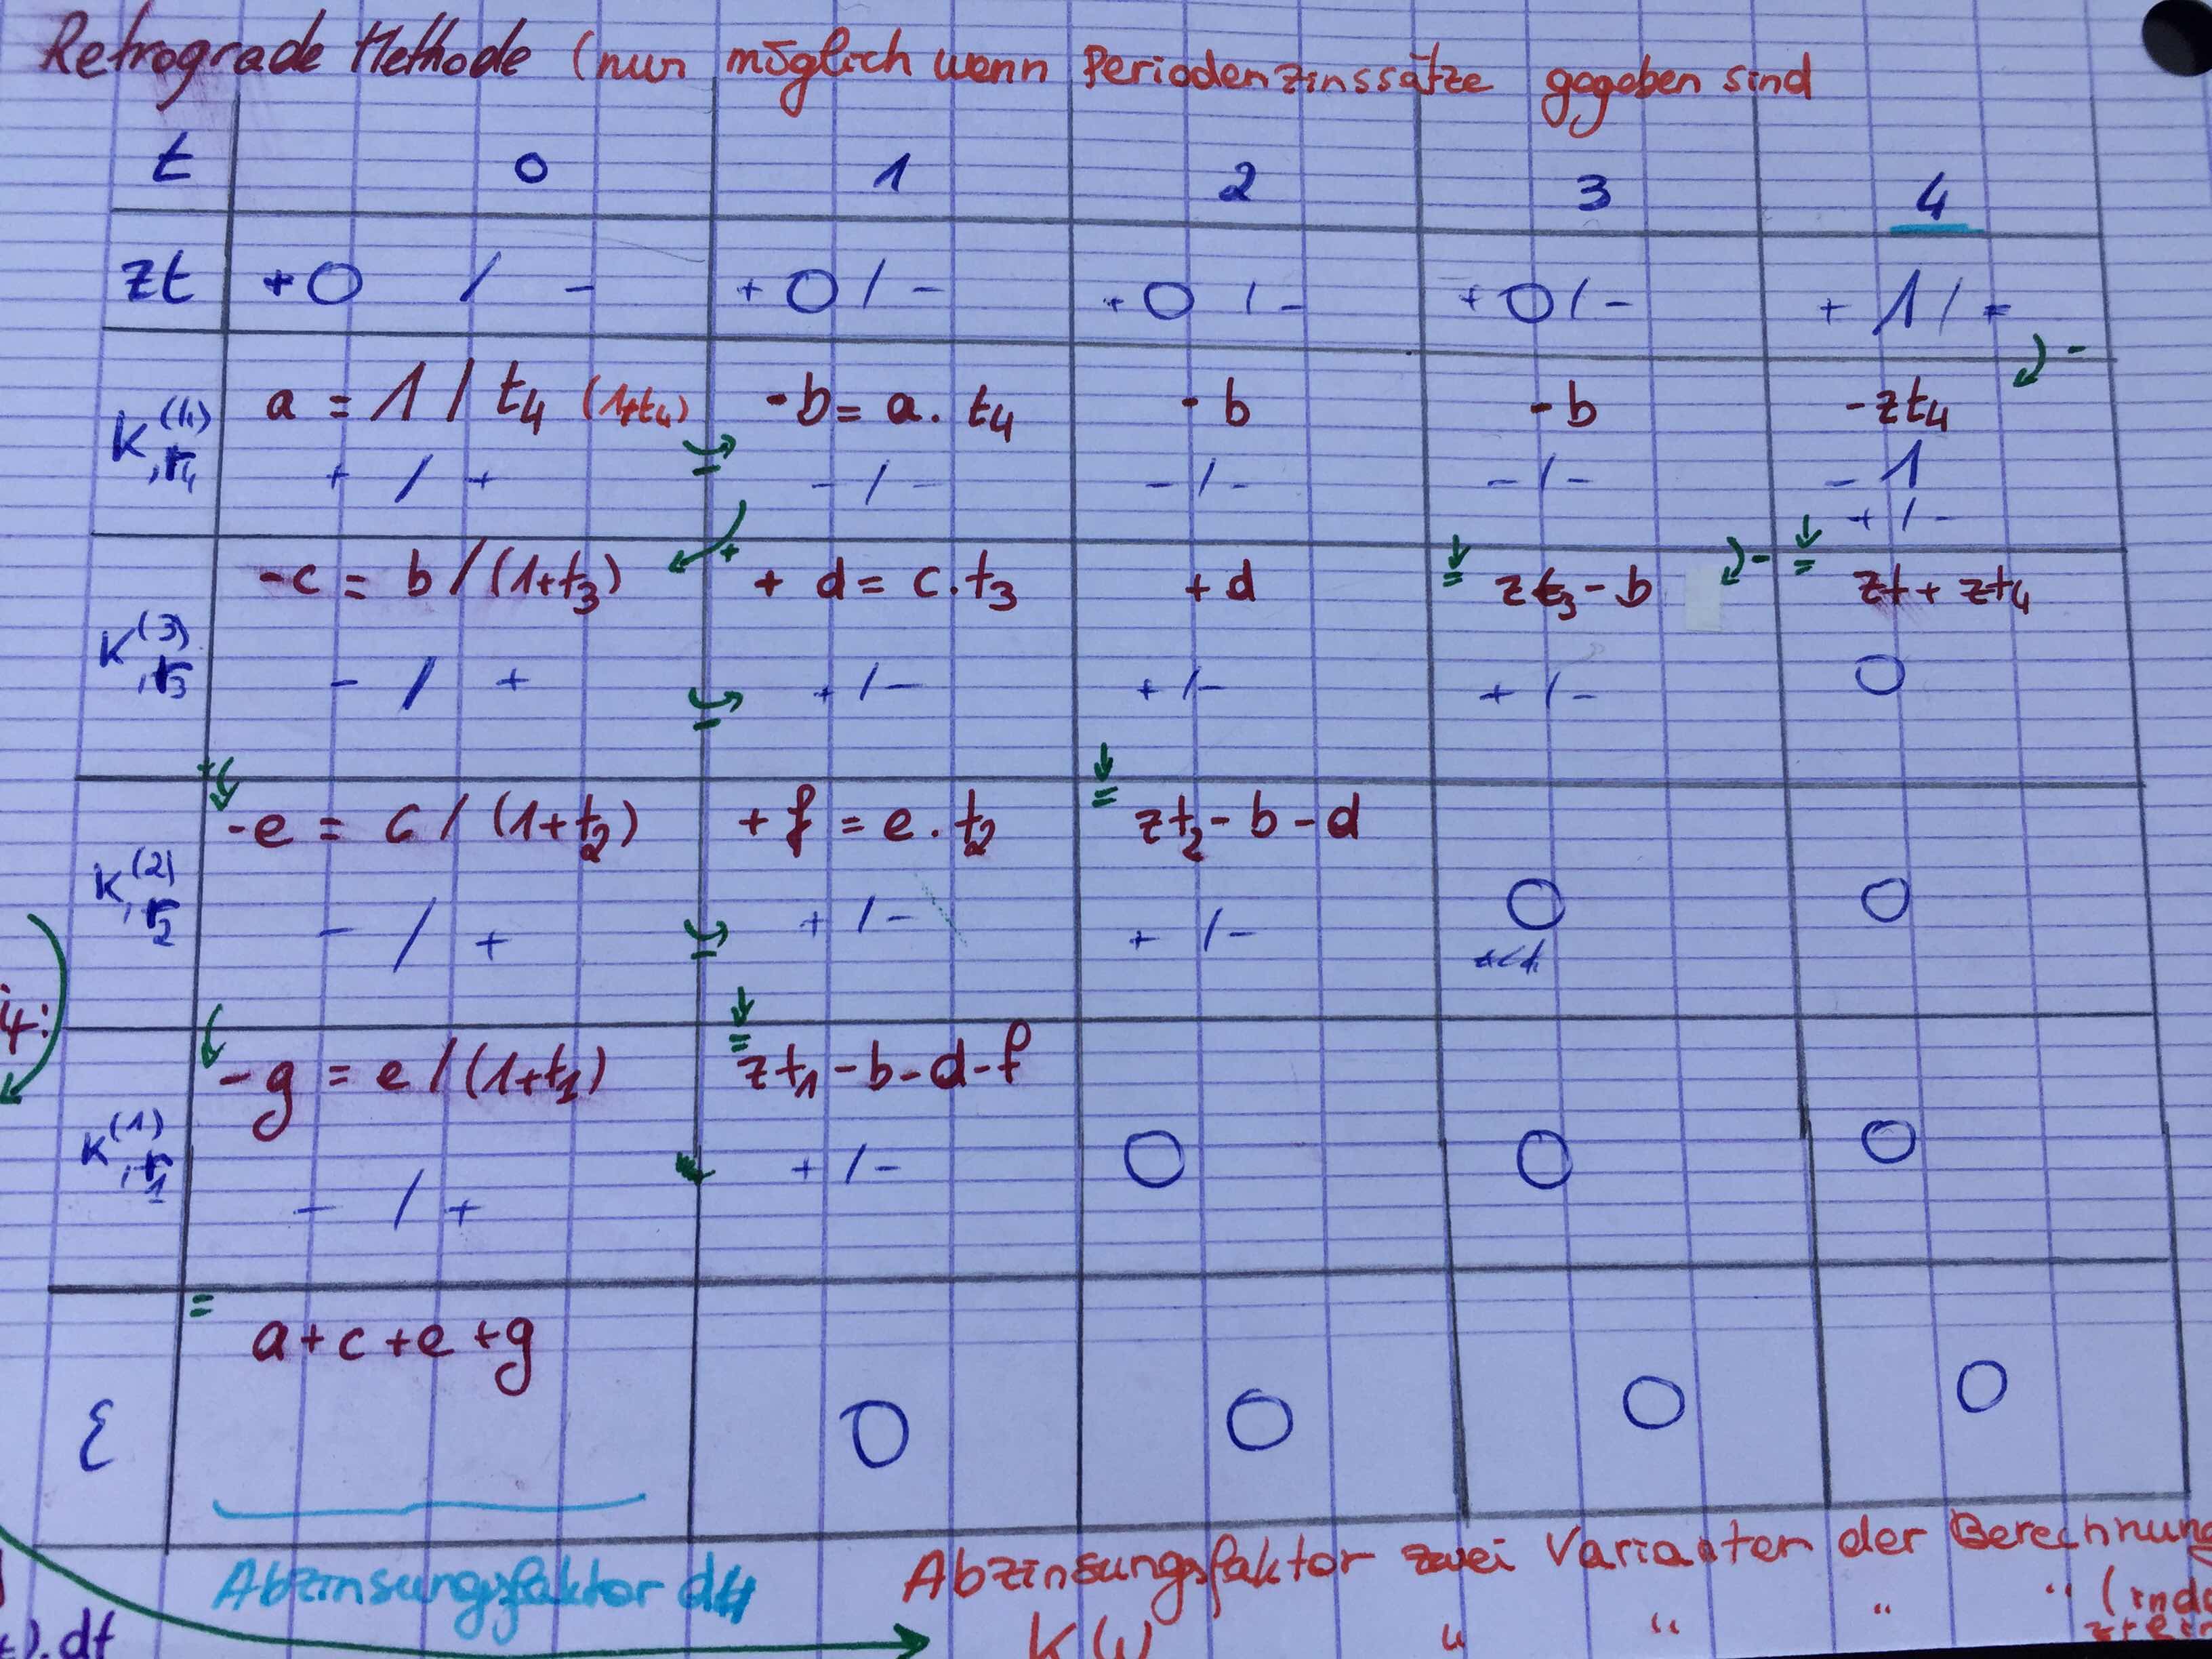 Retrograde Methode (nur möglich wenn Periodenzinssätze gegeben sind
t 0 1 2 3 4
zt +0 / - +0 / - +0 / - +0 / - + 1 / -
K,r4 (4) a = 1 / t4 (1+t4) -b = a . t4 - b - b -zt4
+ / + - / - - / - - / - - 1
+ / -
K,r3 (3) -c = b / (1+t3) + d = c . t3 + d zt3 - b zt + zt4
- / + + / - + / - + / - 0
K,r2 (2) -e = c / (1+t2) + f = e . t2 zt2 - b - d 0 0
- / + + / - + / -
i4:
K,r1 (1) -g = e / (1+t1) zt1 - b - d - f 0 0 0
- / + + / -
Σ = a + c + e + g 0 0 0 0
Abzinsungsfaktor d4 Abzinsungsfaktor zwei Varianten der Berechnung
). dt K(W) " " " " (ind